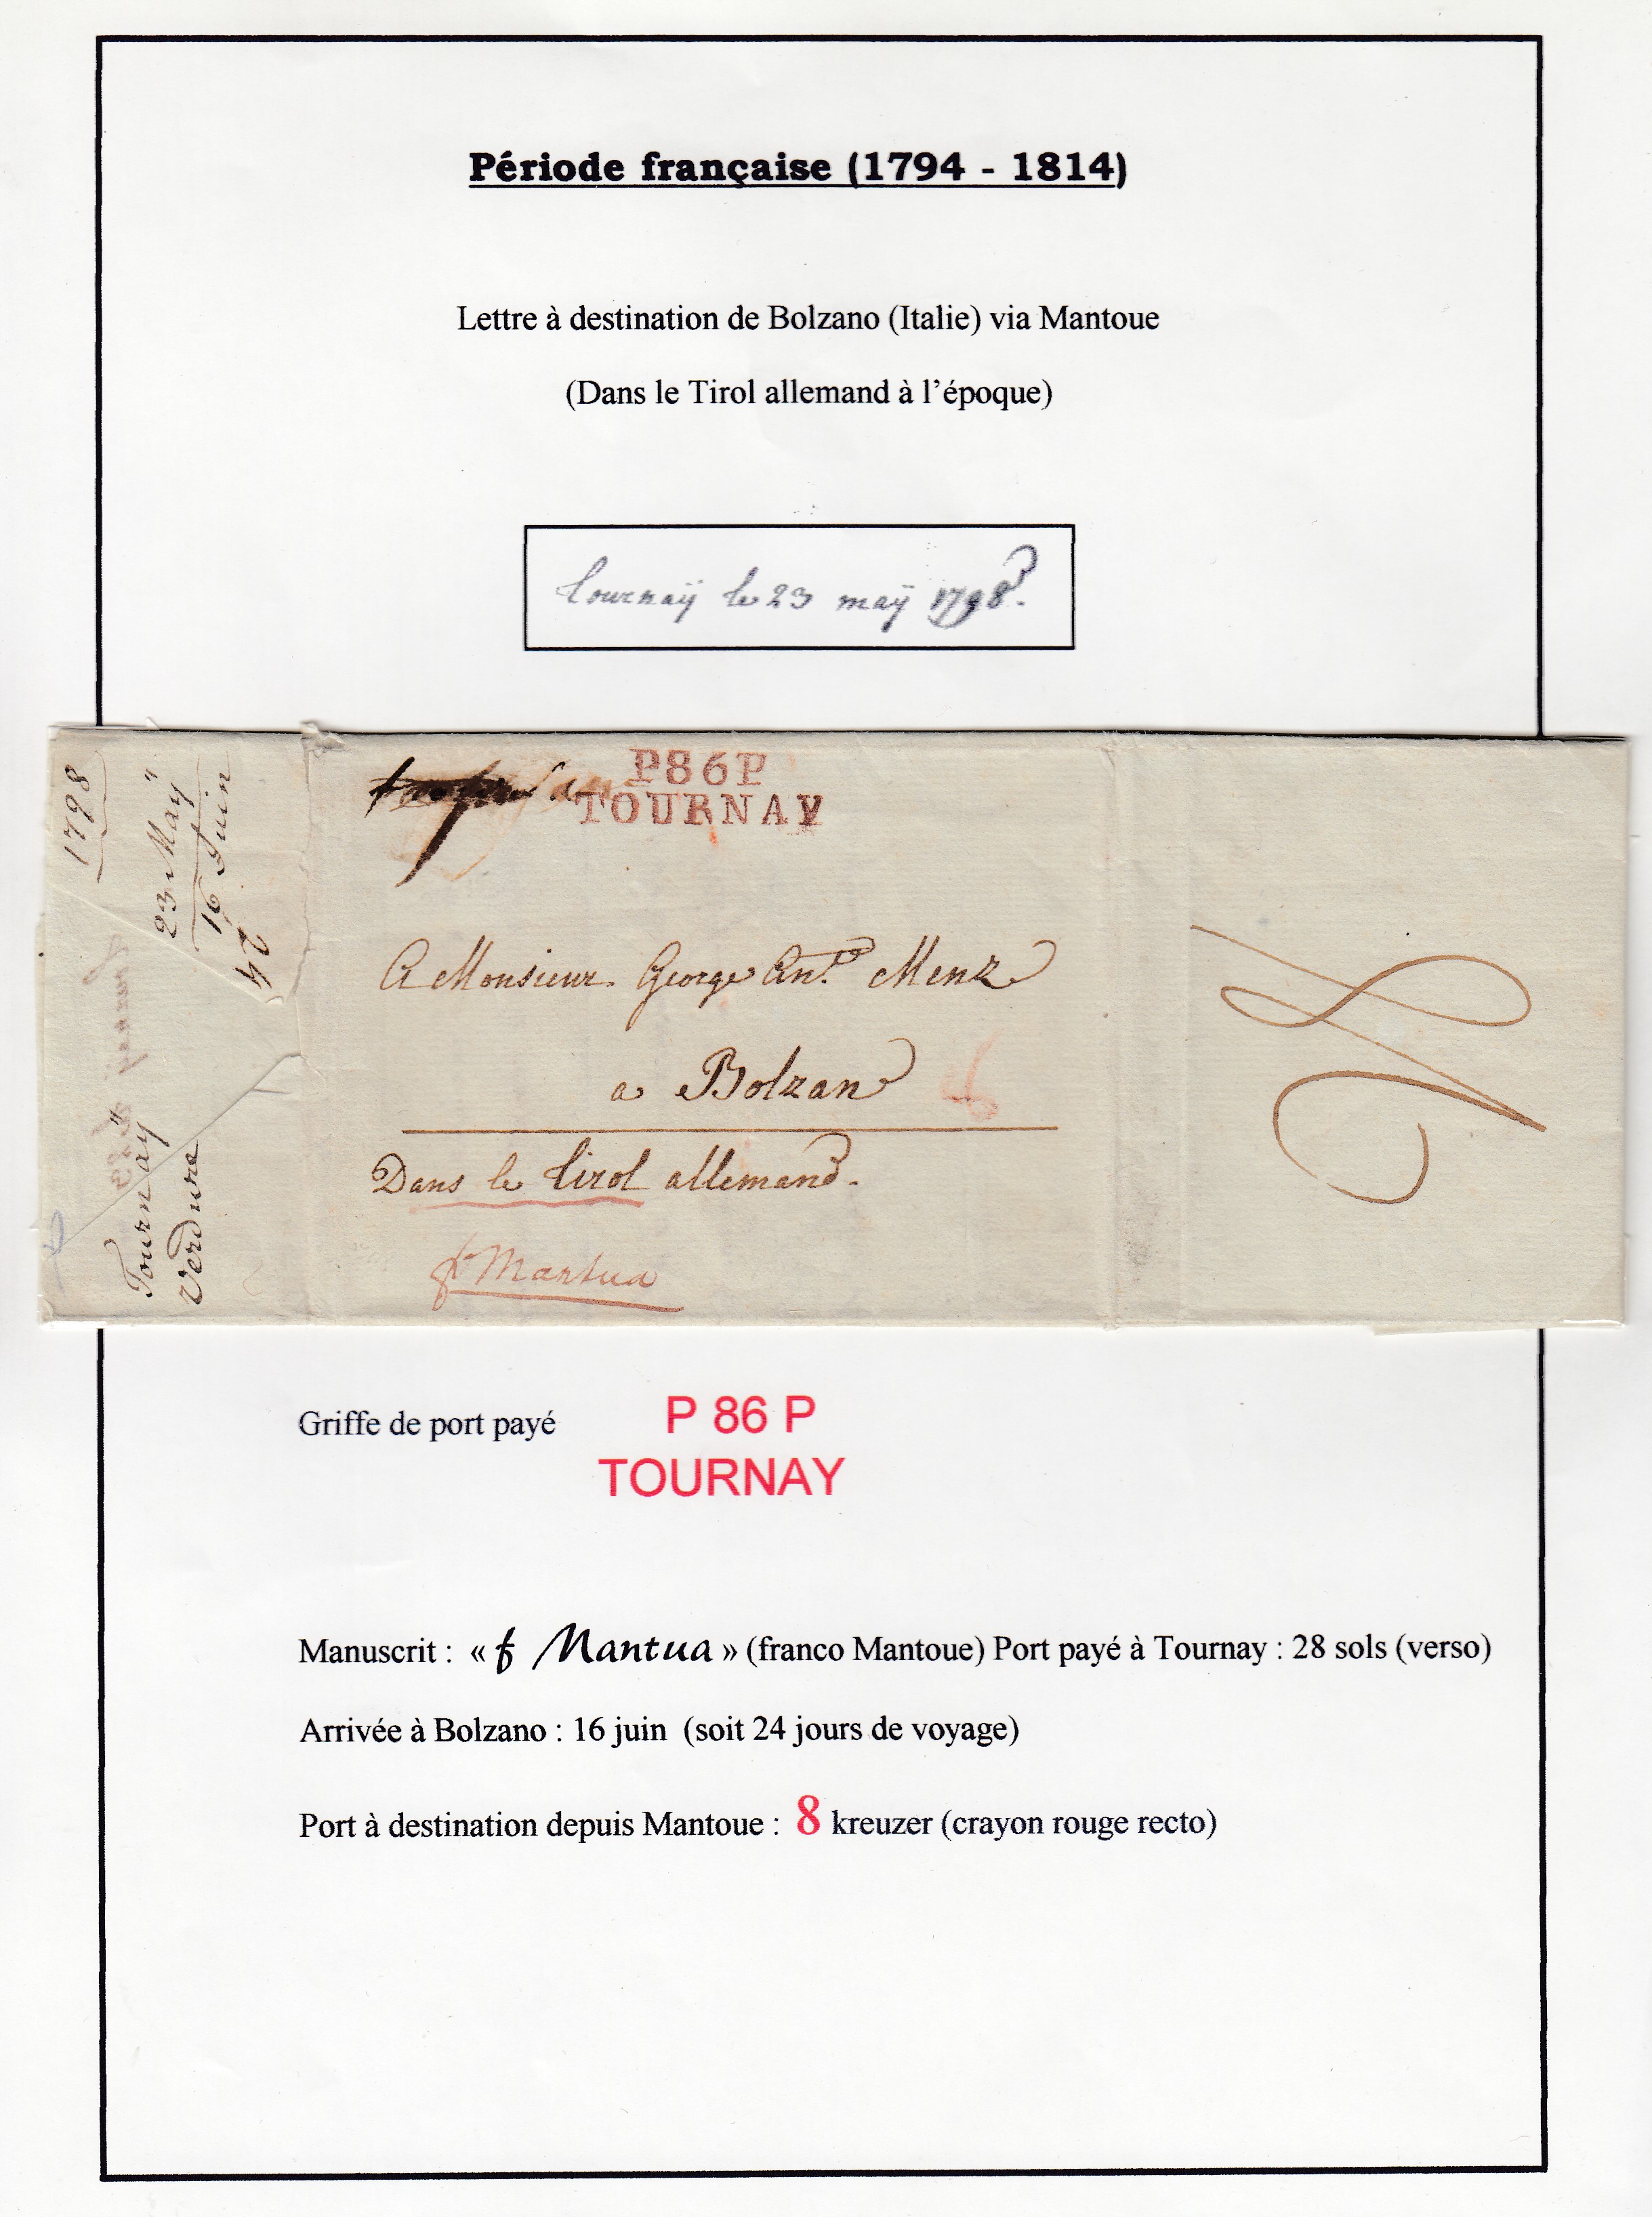 Période française (1794 - 1814)
Lettre à destination de Bolzano (Italie) via Mantoue
(Dans le Tirol allemand à l'époque)
Tournaÿ le 23 maÿ 1798.
1798
23 Maÿ
16 Juin
Tournaÿ
Verdure
P86P
TOURNAY
A Monsieur George Ant. Menz
a Bolzan
Dans le Tirol allemand.
f Mantua
Griffe de port payé
P 86 P
TOURNAY
Manuscrit : « f Mantua » (franco Mantoue) Port payé à Tournay : 28 sols (verso)
Arrivée à Bolzano : 16 juin (soit 24 jours de voyage)
Port à destination depuis Mantoue : 8 kreuzer (crayon rouge recto)